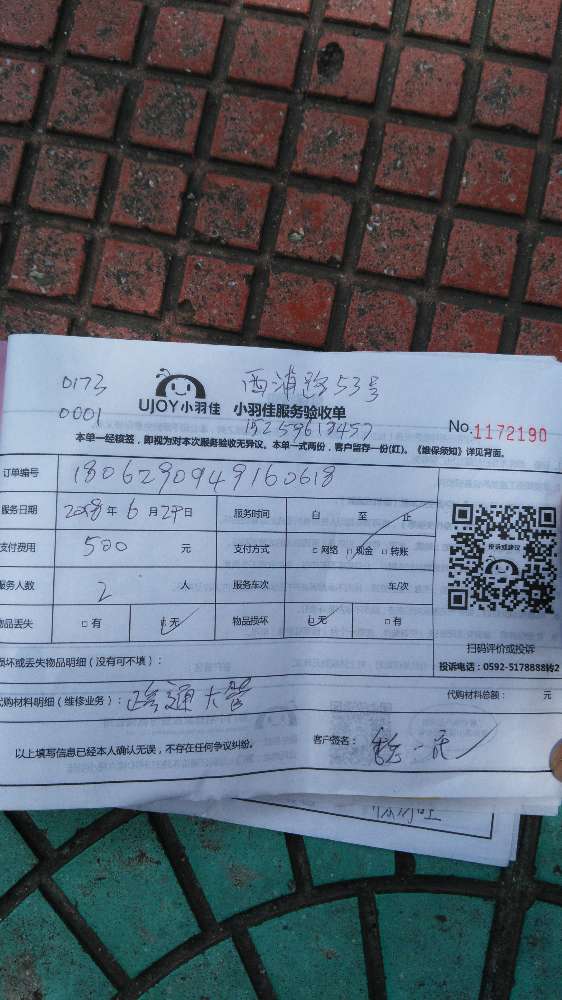 0173
西浦路53号
0001
UJOY小羽佳 小羽佳服务验收单
15259613457
No.1172190
本单一经核签,即视为对本次服务验收无异议。本单一式两份,客户留存一份(红)。《维保须知》详见背面。
订单编号 1806290949160618
服务日期 2018年6月29日 服务时间 自 至 止
支付费用 500 元 支付方式 □网络 □现金 □转账
服务人数 2 人 服务车次 车/次
物品丢失 □有 □无 物品损坏 □无 □有
投诉或建议
扫码评价或投诉
投诉电话:0592-5178888转2
损坏或丢失物品明细(没有可不填):
代购材料明细(维修业务): 疏通大管 代购材料总额: 元
以上填写信息已经本人确认无误,不存在任何争议纠纷。 客户签名: